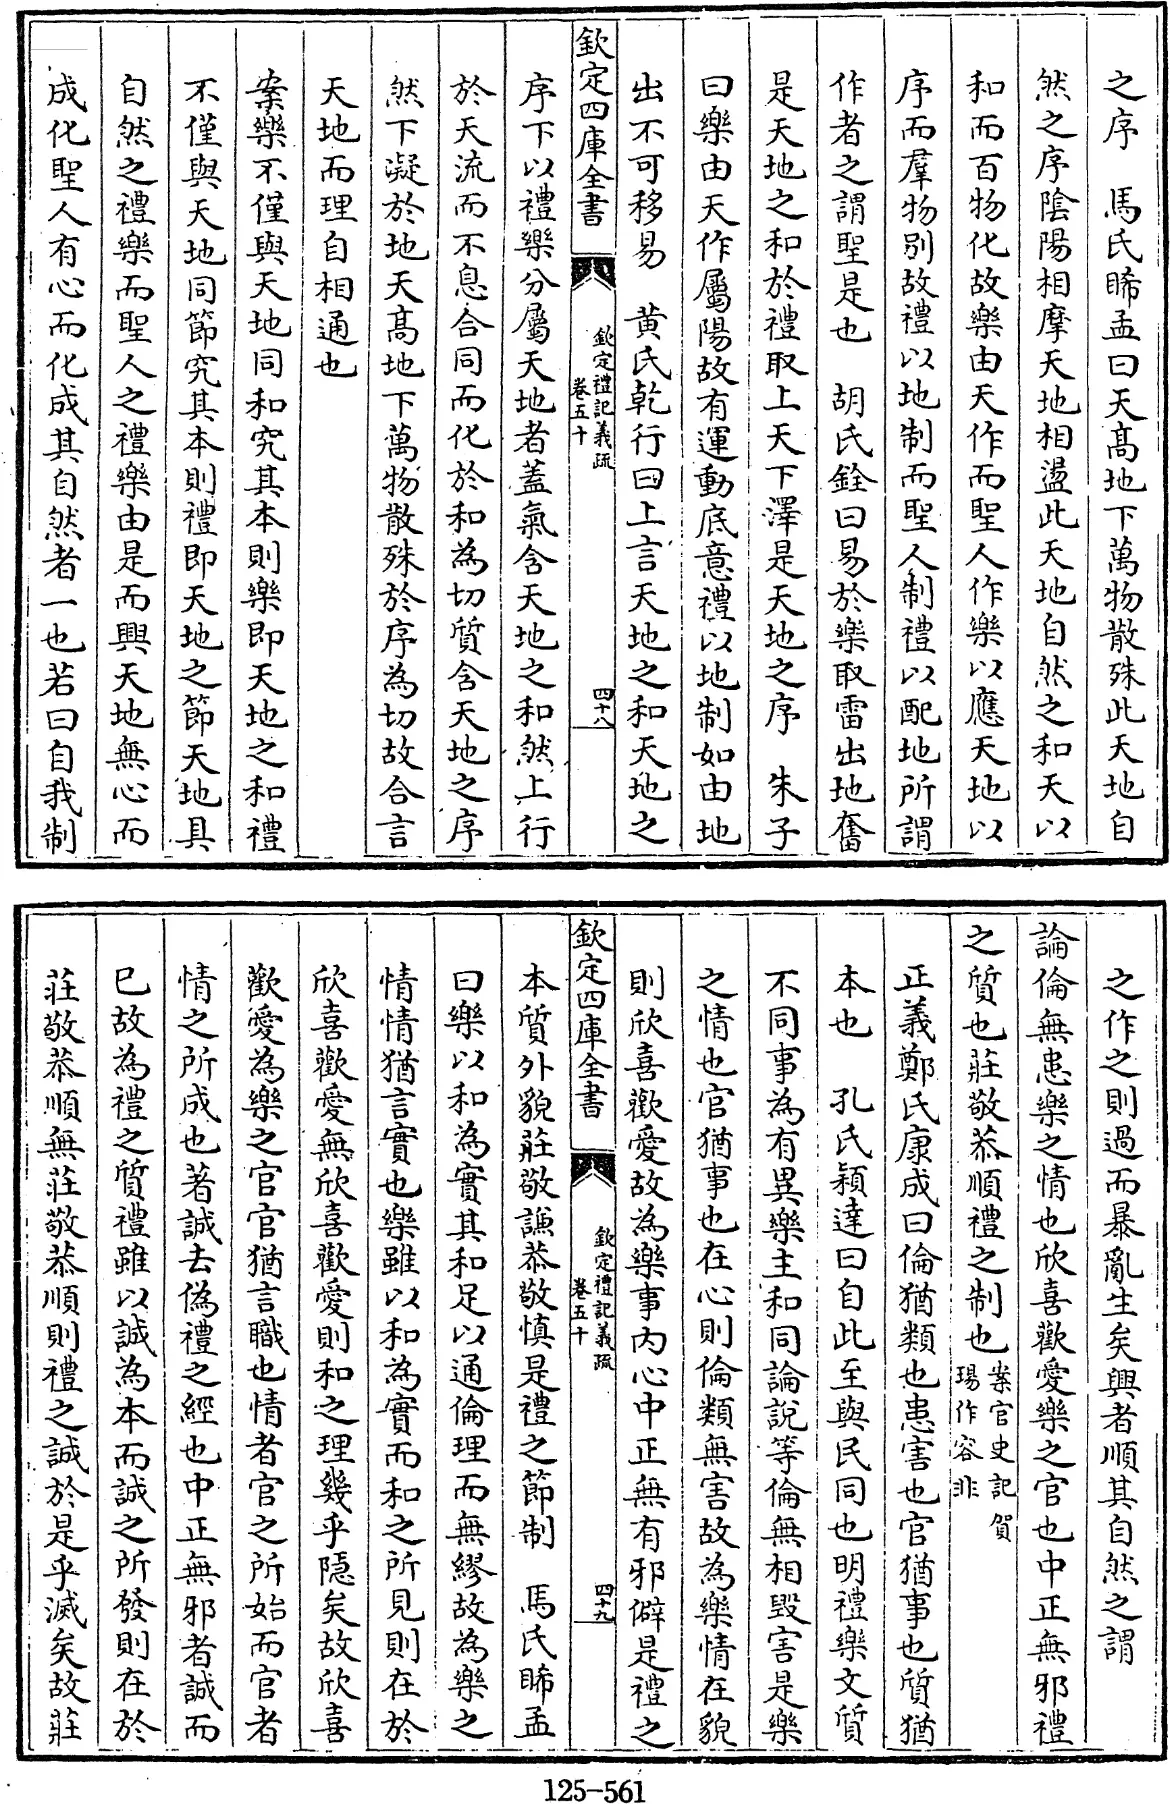 之序　馬氏晞孟曰天髙地下萬物散殊此天地自
然之序陰陽相摩天地相盪此天地自然之和天以
和而百物化故樂由天作而聖人作樂以應天地以
序而羣物别故禮以地制而聖人制禮以配地所謂
作者之謂聖是也　胡氏銓曰易於樂取雷出地奮
是天地之和於禮取上天下澤是天地之序　朱子
曰樂由天作屬陽故有運動底意禮以地制如由地
出不可移易　黄氏乾行曰上言天地之和天地之
欽定四庫全書
欽定禮記義疏
卷五十
四十八
序下以禮樂分屬天地者蓋氣含天地之和然上行
於天流而不息合同而化於和為切質含天地之序
然下凝於地天髙地下萬物散殊於序為切故合言
天地而理自相通也
案樂不僅與天地同和究其本則樂即天地之和禮
不僅與天地同節究其本則禮即天地之節天地具
自然之禮樂而聖人之禮樂由是而興天地無心而
成化聖人有心而化成其自然者一也若曰自我制
之作之則過而暴亂生矣興者順其自然之謂
論倫無患樂之情也欣喜歡愛樂之官也中正無邪禮
之質也莊敬恭順禮之制也案官史記賀
瑒作容非
正義鄭氏康成曰倫猶類也患害也官猶事也質猶
本也　孔氏穎達曰自此至與民同也明禮樂文質
不同事為有異樂主和同論説等倫無相毀害是樂
之情也官猶事也在心則倫類無害故為樂情在貌
則欣喜歡愛故為樂事内心中正無有邪僻是禮之
欽定四庫全書
欽定禮記義疏
卷五十
四十九
本質外貌莊敬謙恭敬慎是禮之節制　馬氏晞孟
曰樂以和為實其和足以通倫理而無繆故為樂之
情情猶言實也樂雖以和為實而和之所見則在於
欣喜歡愛無欣喜歡愛則和之理幾乎隠矣故欣喜
歡愛為樂之官官猶言職也情者官之所始而官者
情之所成也著誠去偽禮之經也中正無邪者誠而
已故為禮之質禮雖以誠為本而誠之所發則在於
莊敬恭順無莊敬恭順則禮之誠於是乎滅矣故莊
125-561